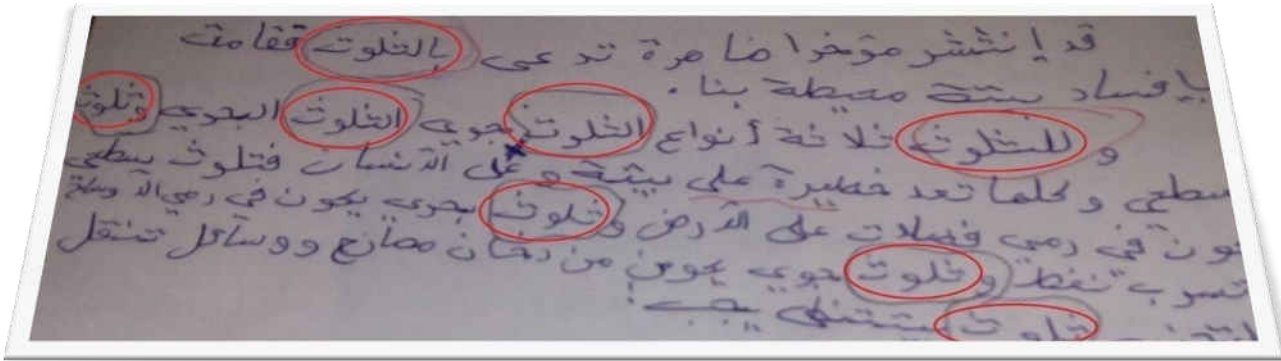 قد إنتشر مؤخرا ضاهرة تدعى بالتلوث فقامت
بإفساد بيئة محيطة بنا.
و للتلوث ثلاثة أنواع التلوث جوي التلوث البحري وتلوث
سطحي وكلها تعد خطيرة على بيئة و على الانسان فتلوث سطحي
في رمي فضلات على الارض و تلوث بحري يكون في رمي الاوساخ
تسرب نفط و تلوث جوي يكون من دخان مصانع ووسائل تنقل
تلوث يجب: